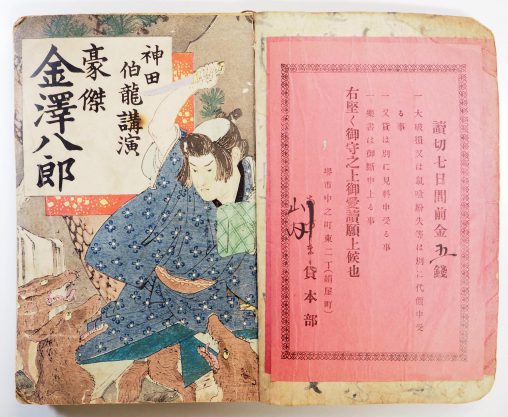 讀切七日間前金五錢
一 大破損又は鼠喰紛失等は別に代價申受
る事
一 又貸は別に見料申受る事
一 樂書は御斷申上る事
右堅く御守之上御愛讀願上候也
堺市中之町東二丁
貸本部
神田
伯龍講演
豪傑
金澤八郎